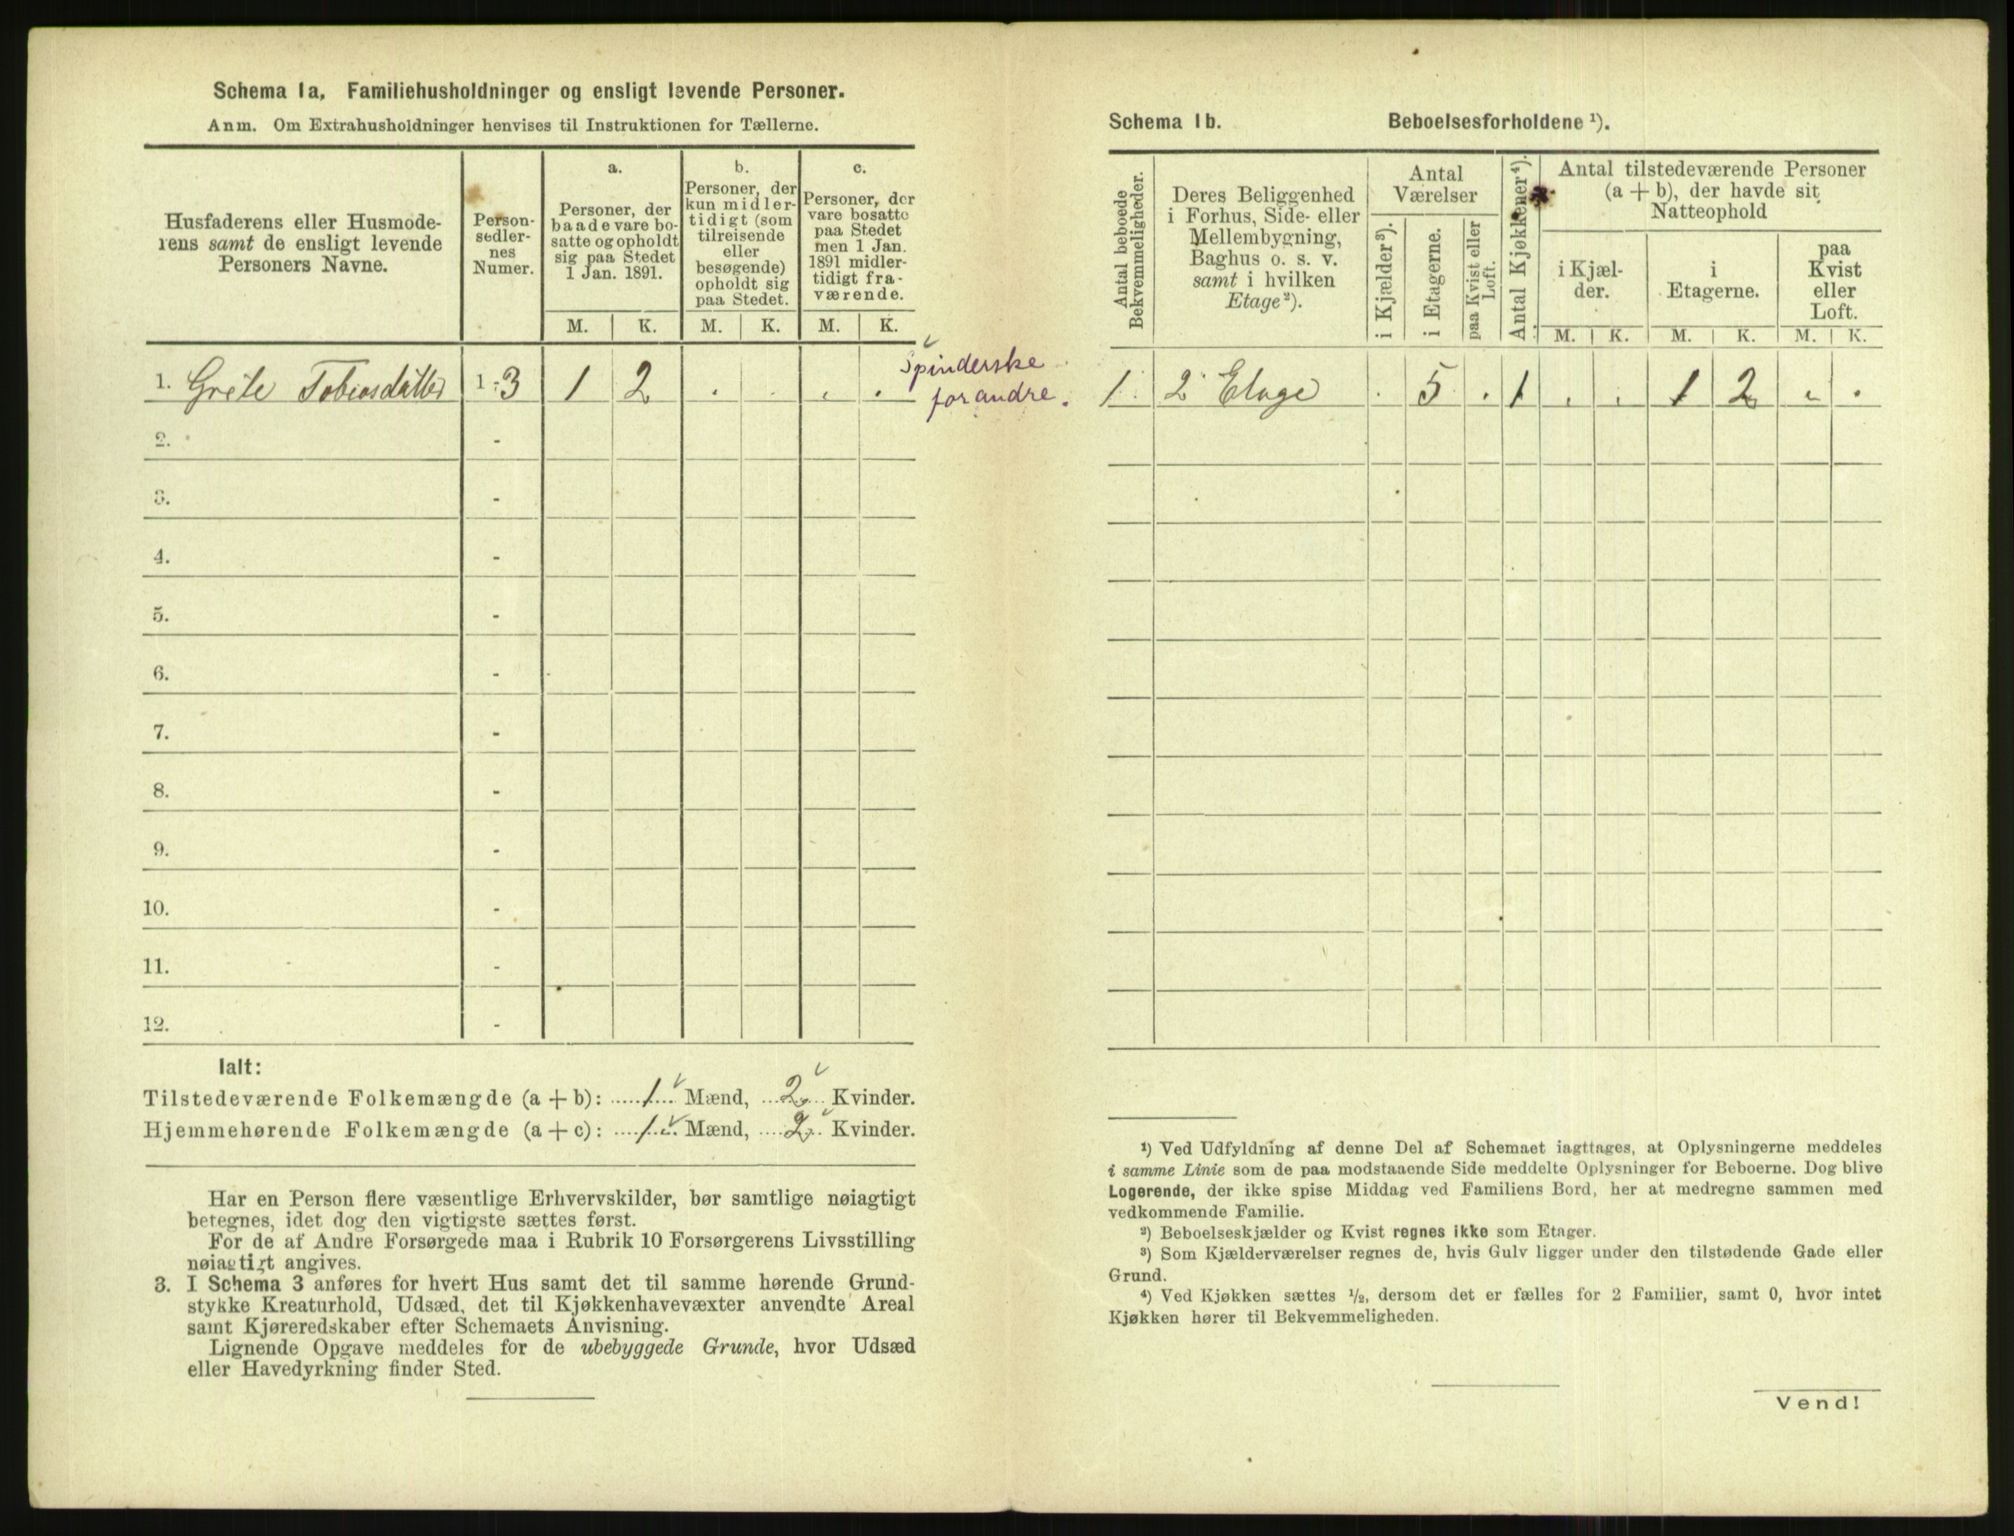 Schema 1a. Familiehusholdninger og ensligt levende Personer.
Anm. Om Extrahusholdninger henvises til Instruktionen for Tællerne.
Husfaderens eller Husmode-
rens samt de ensligt levende
Personers Navne.
Person-
sedler-
nes
Numer.
a.
Personer, der
baade vare bo-
satte og opholdt
sig paa Stedet
1 Jan. 1891.
b.
Personer, der
kun midler-
tidigt (som
tilreisende
eller
besøgende)
opholdt sig
paa Stedet.
c.
Personer, der
vare bosatte
paa Stedet
men 1 Jan.
1891 midler-
tidigt fra-
værende.
M. K. M. K. M. K.
1. Grete Tobiasdatter 1-3 1 2 . . . .
Spinderske
for andre.
2. -
3. -
4. -
5. -
6. -
7. -
8. -
9. -
10. -
11. -
12. -
Ialt:
Tilstedeværende Folkemængde (a + b): 1 Mænd, 2 Kvinder.
Hjemmehørende Folkemængde (a + c): 1 Mænd, 2 Kvinder.
Har en Person flere væsentlige Erhvervskilder, bør samtlige nøiagtigt
betegnes, idet dog den vigtigste sættes først.
For de af Andre Forsørgede maa i Rubrik 10 Forsørgerens Livsstilling
nøiagtigt angives.
3. I Schema 3 anføres for hvert Hus samt det til samme hørende Grund-
stykke Kreaturhold, Udsæd, det til Kjøkkenhavevæxter anvendte Areal
samt Kjøreredskaber efter Schemaets Anvisning.
Lignende Opgave meddeles for de ubebyggede Grunde, hvor Udsæd
eller Havedyrkning finder Sted.
Schema 1b. Beboelsesforholdene ¹).
Antal beboede
Bekvemmeligheder.
Deres Beliggenhed
i Forhus, Side- eller
Mellembygning,
Baghus o. s. v.
samt i hvilken
Etage ²).
Antal
Værelser
i Kjælder ³).
i Etagerne.
paa Kvist eller
Loft.
Antal Kjøkkener ⁴).
Antal tilstedeværende Personer
(a + b), der havde sit
Natteophold
i Kjæl-
der.
i
Etagerne.
paa
Kvist
eller
Loft.
M. K. M. K. M. K.
1 2 Etage . 5 . 1 . . 1 2 . .
¹) Ved Udfyldning af denne Del af Schemaet iagttages, at Oplysningerne meddeles
i samme Linie som de paa modstaaende Side meddelte Oplysninger for Beboerne. Dog blive
Logerende, der ikke spise Middag ved Familiens Bord, her at medregne sammen med
vedkommende Familie.
²) Beboelseskjælder og Kvist regnes ikke som Etager.
³) Som Kjælderværelser regnes de, hvis Gulv ligger under den tilstødende Gade eller
Grund.
⁴) Ved Kjøkken sættes ½, dersom det er fælles for 2 Familier, samt 0, hvor intet
Kjøkken hører til Bekvemmeligheden.
Vend!